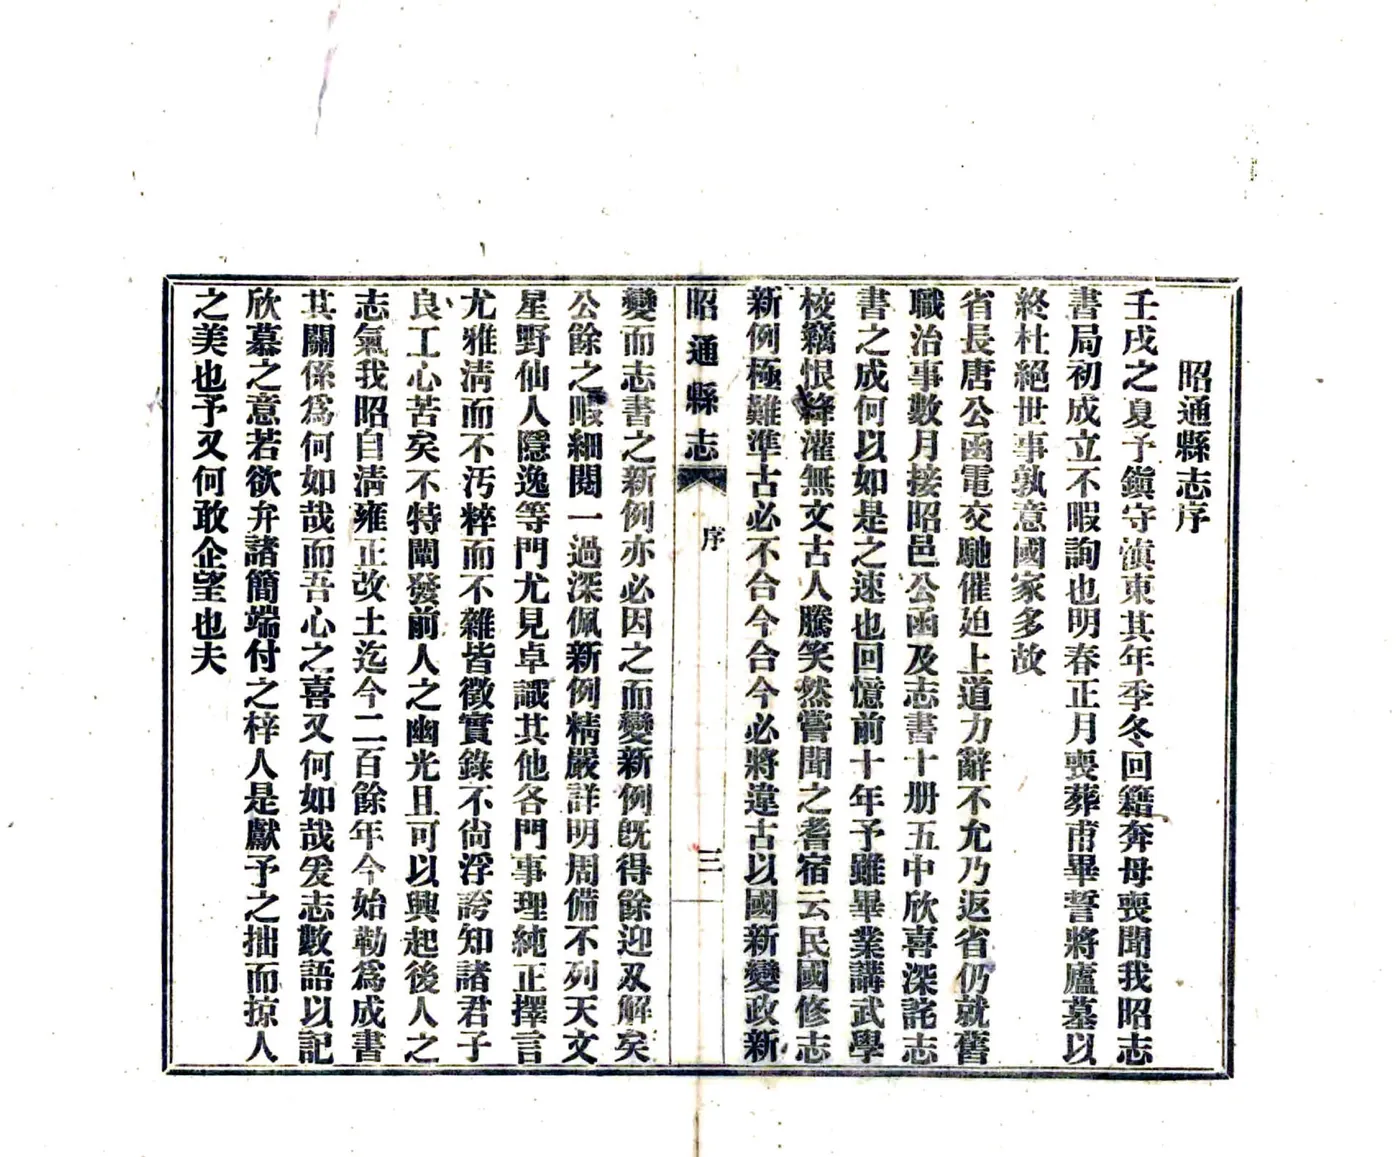 昭通縣志序
壬戌之夏予鎭守滇東其年季冬回籍奔母喪聞我昭志
書局初成立不暇詢也明春正月喪葬甫畢誓將廬墓以
終杜絕世事孰意國家多故
省長唐公函電交馳催廹上道力辭不允乃返省仍就舊
職治事數月接昭邑公函及志書十册五中欣喜深詫志
書之成何以如是之速也回憶前十年予雖畢業講武學
校竊恨絳灌無文古人騰笑然嘗聞之耆宿云民國修志
新例極難準古必不合今合今必將違古以國新變政新
昭通縣志
序
三
變而志書之新例亦必因之而變新例旣得餘迎刄解矣
公餘之暇細閱一過深佩新例精嚴詳明周備不列天文
星野仙人隱逸等門尤見卓識其他各門事理純正擇言
尤雅淸而不汚粹而不雜皆徵實錄不尙浮誇知諸君子
良工心苦矣不特闡發前人之幽光且可以興起後人之
志氣我昭自淸雍正改土迄今二百餘年今始勒爲成書
其關係爲何如哉而吾心之喜又何如哉爰志數語以記
欣慕之意若欲弁諸簡端付之梓人是獻予之拙而掠人
之美也予又何敢企望也夫